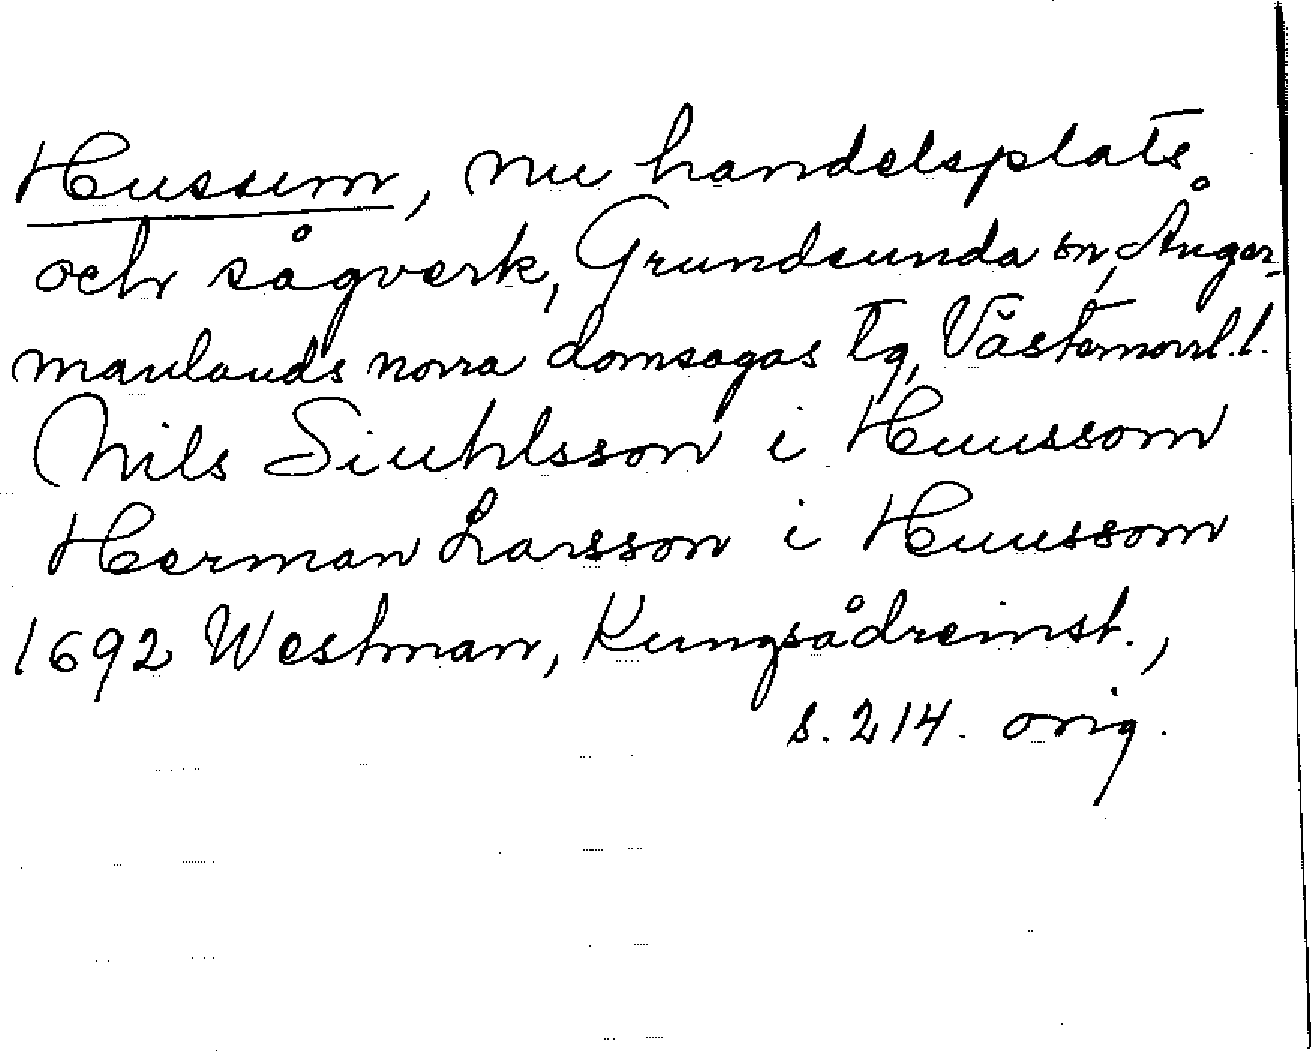 Hussum, nu handelsplats
och sågverk, Grundsunda sn, Ånger-
manlands norra domsagas tg, Västernorrl. l.
Nils Siuhlsson i Huussom
Herman Larsson i Huussom
1692 Westman, Kungsådreinst.,
s. 214. orig.